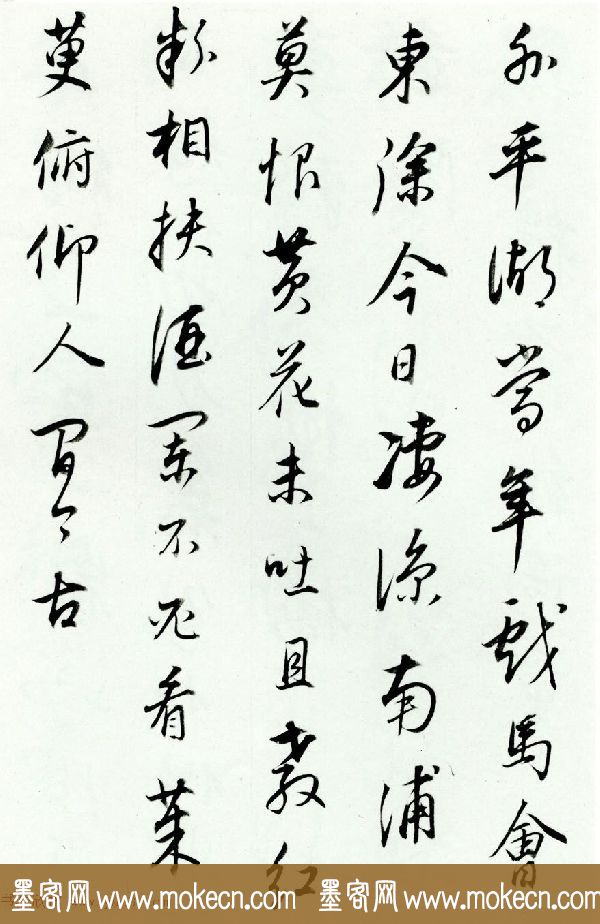 外平湖當年戲馬會
東徐今日凄涼南浦
莫恨黃花未吐且教紅
粉相扶酒闌不必看茱
萸俯仰人間今古
墨客网 www.mokecn.com 墨客网 www.mokecn.com